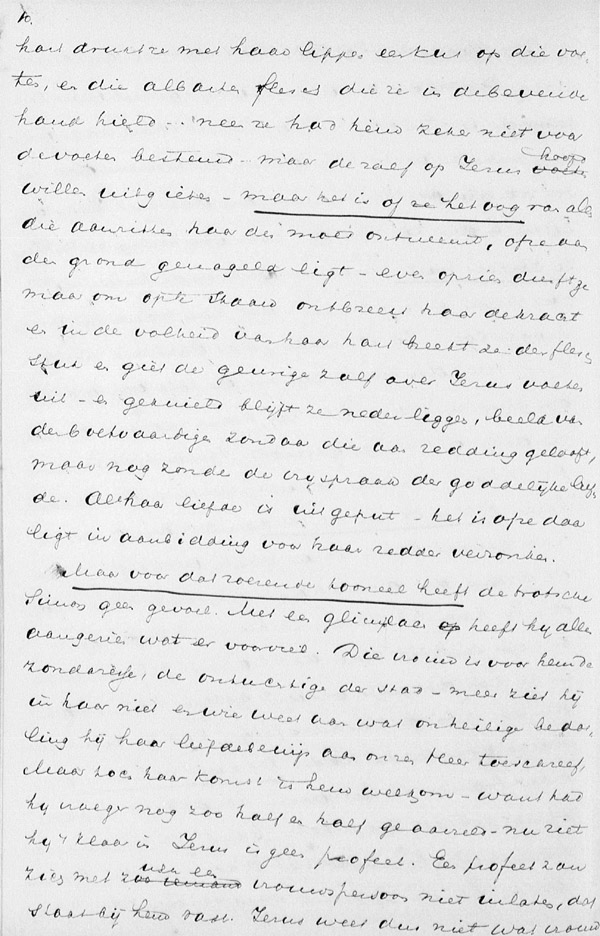 10.
hart drukt ze met haar lippen een kus op die voe-
ten, en die albasten flesch die ze in de bevende
hand hield - neen ze had hem zeker niet voor
de voeten bestemd - maar de zalf op Jezus hoofd voeten
willen uitgieten - maar het is of ze het oog van allen
die aanzitten haar den moed ontneemt, of ze aan
den grond genageld ligt - even opzien durft ze
maar om op te staan ontbreekt haar de kracht
en in de volheid van haar hart breekt ze de flesch
stuk en giet de geurige zalf over Jezus voeten
uit - en geknield blijft ze neder liggen, beeld van
den boetvaardigen zondaar die aan redding gelooft,
maar nog zonder de vryspraak der goddelijke lief-
de. Al haar liefde is uitgeput - het is of ze daar
ligt in aanbidding voor haar redder verzonken.
Maar voor dat roerende tooneel heeft de trotsche
Simon geen gevoel. Met een glimlach op heeft hij alles
aangezien wat er voorviel. Die vrouw is voor hem de
zondaresse, de ontuchtige der stad - meer ziet hij
in haar niet en wie weet aan wat onheilige bedoe-
ling hij haar liefdebewijs aan onzen Heer toeschreef.
Maar toch haar komst is hem welkom - want had
hij vroeger nog zoo half en half geaarzeld - nu ziet
hij 't klaar in Jezus is geen profeet. Een profeet zou
zich met zoo iemand zulk een vrouwspersoon niet inlaten, dat
staat bij hem vast. Jezus weet dus niet wat vrouw